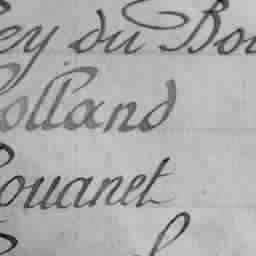 ey du Bou
olland
ouanet